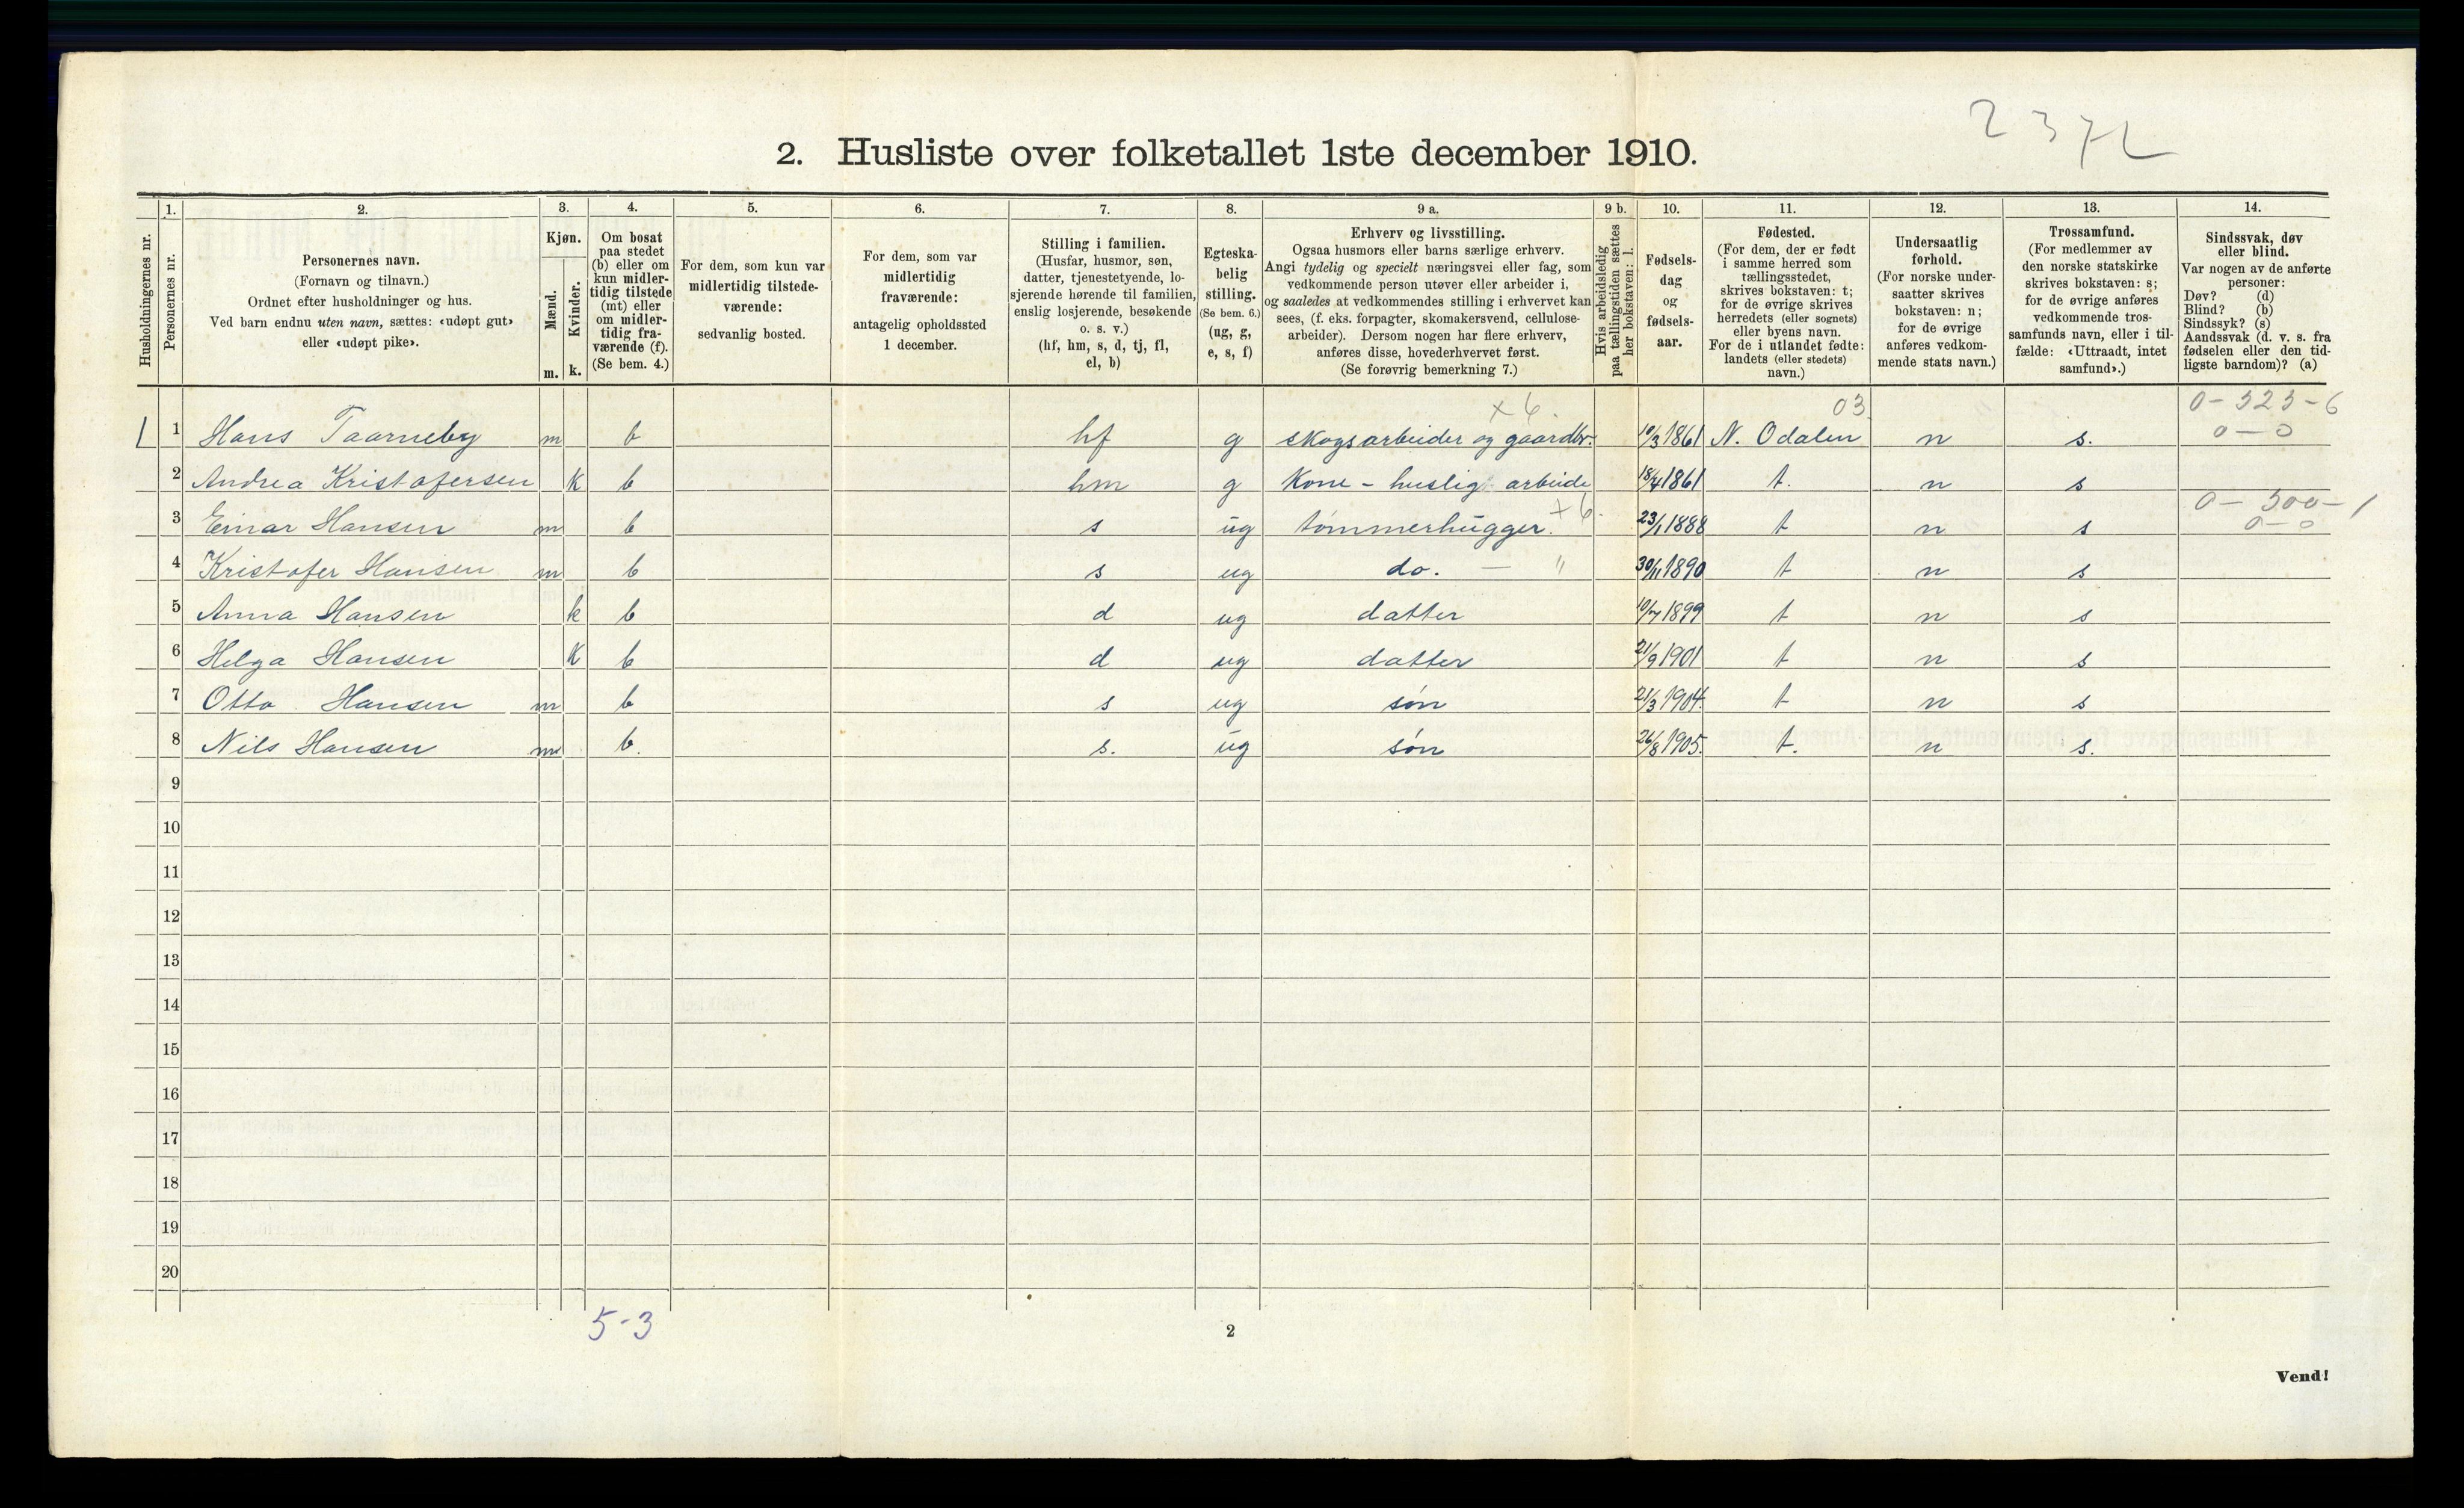 2372
2. Husliste over folketallet 1ste december 1910.
Husholdningernes nr.
1. Personernes nr.
2. Personernes navn.
(Fornavn og tilnavn.)
Ordnet efter husholdninger og hus.
Ved barn endnu uten navn, sættes: «udøpt gut»
eller «udøpt pike».
3. Kjøn.
Mænd. m.
Kvinder. k.
4. Om bosat
paa stedet
(b) eller om
kun midler-
tidig tilstede
(mt) eller
om midler-
tidig fra-
værende (f).
(Se bem. 4.)
5. For dem, som kun var
midlertidig tilstede-
værende:
sedvanlig bosted.
6. For dem, som var
midlertidig
fraværende:
antagelig opholdssted
1 december.
7. Stilling i familien.
(Husfar, husmor, søn,
datter, tjenestetyende, lo-
sjerende hørende til familien,
enslig losjerende, besøkende
o. s. v.)
(hf, hm, s, d, tj, fl,
el, b)
8. Egteska-
belig
stilling.
(Se bem. 6.)
(ug, g,
e, s, f)
9 a. Erhverv og livsstilling.
Ogsaa husmors eller barns særlige erhverv.
Angi tydelig og specielt næringsvei eller fag, som
vedkommende person utøver eller arbeider i,
og saaledes at vedkommendes stilling i erhvervet kan
sees, (f. eks. forpagter, skomakersvend, cellulose-
arbeider). Dersom nogen har flere erhverv,
anføres disse, hovederhvervet først.
(Se forøvrig bemerkning 7.)
9 b. Hvis arbeidsledig
paa tællingstiden sættes
her bokstaven: l.
10. Fødsels-
dag
og
fødsels-
aar.
11. Fødested.
(For dem, der er født
i samme herred som
tællingsstedet,
skrives bokstaven: t;
for de øvrige skrives
herredets (eller sognets)
eller byens navn.
For de i utlandet fødte:
landets (eller stedets)
navn.)
12. Undersaatlig
forhold.
(For norske under-
saatter skrives
bokstaven: n;
for de øvrige
anføres vedkom-
mende stats navn.)
13. Trossamfund.
(For medlemmer av
den norske statskirke
skrives bokstaven: s;
for de øvrige anføres
vedkommende tros-
samfunds navn, eller i til-
fælde: «Uttraadt, intet
samfund».)
14. Sindssvak, døv
eller blind.
Var nogen av de anførte
personer:
Døv? (d)
Blind? (b)
Sindssyk? (s)
Aandssvak (d. v. s. fra
fødselen eller den tid-
ligste barndom)? (a)
x 6. 03 0-323-6
1 1 Hans Taarneby m b hf g skogsarbeider og gaardbr. 10/3 1861 N. Odalen n s. 0-0
2 Andrea Kristofersen k b hm g Kone - huslig arbeide 18/4 1861 t. n s
x 6. 0-300-1
3 Einar Hansen m b s ug tømmerhugger. 23/1 1888 t n s 0-0
4 Kristofer Hansen m b s ug do. — " 30/11 1890 t n s
5 Anna Hansen k b d ug datter 10/7 1899 t n s
6 Helga Hansen K b d ug datter 21/9 1901 t n s
7 Otto Hansen m b s ug søn 21/3 1904. t n s
8 Nils Hansen m b. s. ug søn 26/8 1905. t. n s.
9
10
11
12
13
14
15
16
17
18
19
20
5-3
2
Vend!